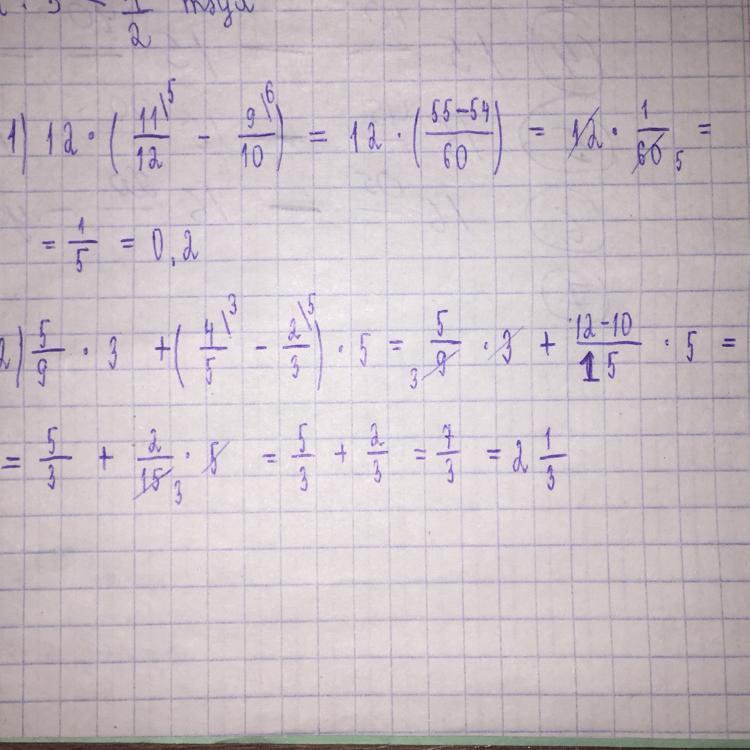 1/2
1) 12 · (11\5/12 - 9\6/10) = 12 · (55-54/60) = 12 · 1/60 5 =
= 1/5 = 0,2
2) 5/9 · 3 + (4\3/5 - 2\5/3) · 5 = 5/3 9 · 3 + 12-10/15 · 5 =
= 5/3 + 2/15 3 · 5 = 5/3 + 2/3 = 7/3 = 2 1/3